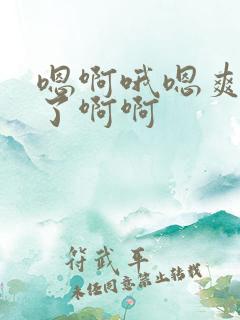 嗯啊哦嗯爽
了啊啊
符武平
未经同意禁止转载